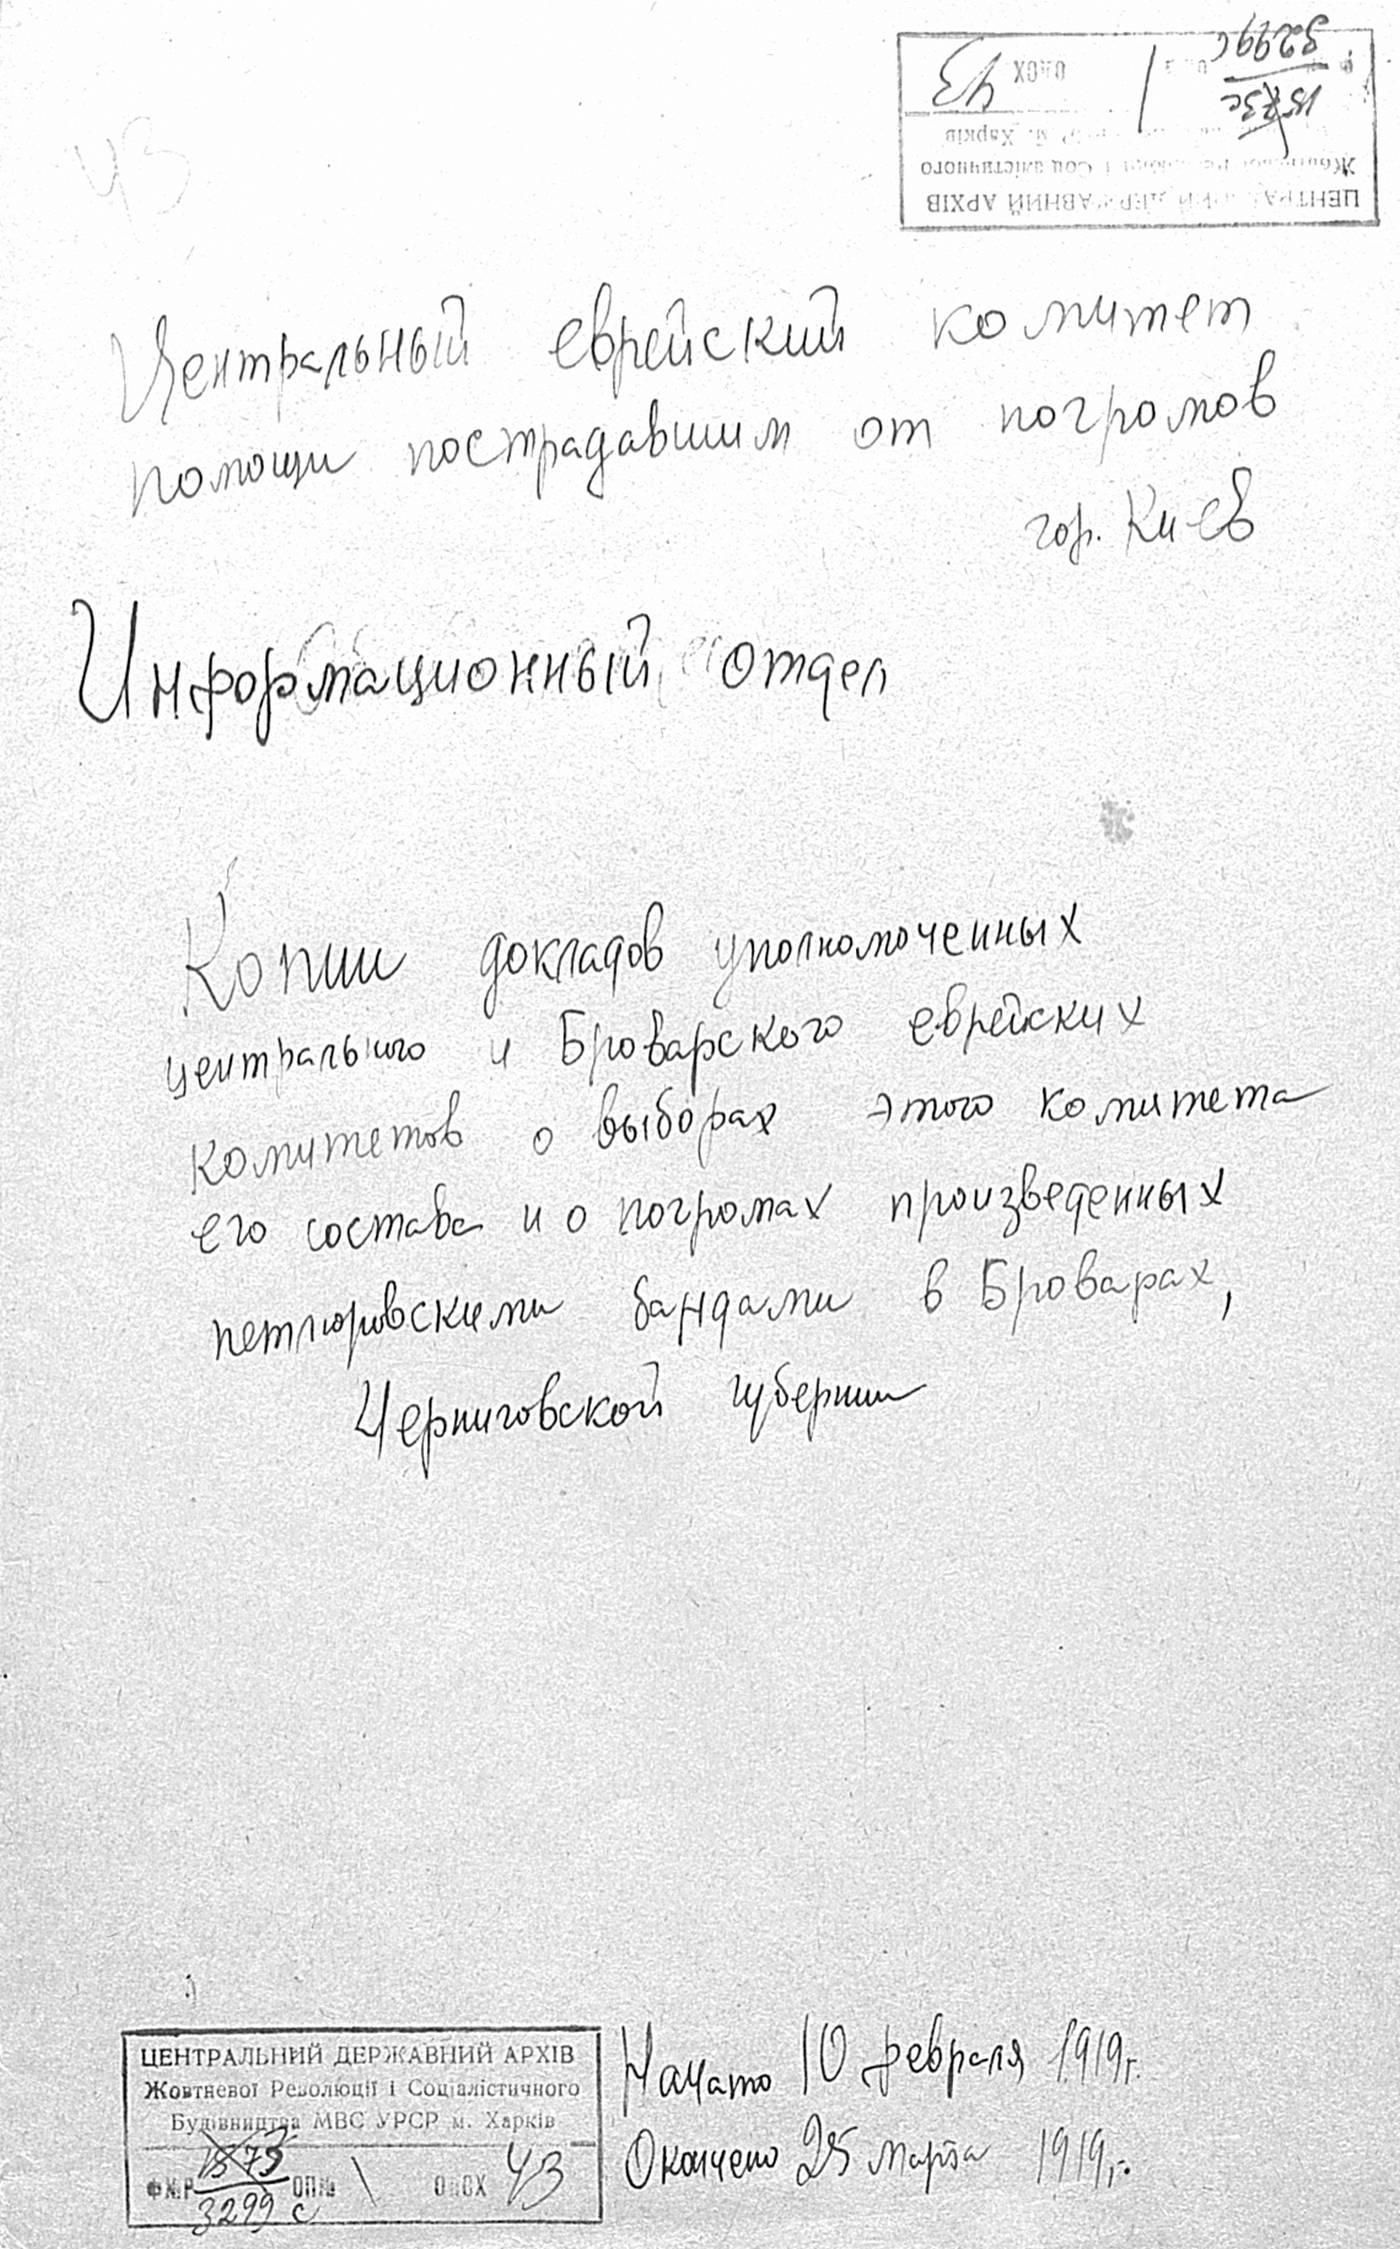 3299с
1573с
1
ОДСХ 43
м. Харків
Жовтневої Революції і Соціалістичного
ЦЕНТРАЛЬНИЙ ДЕРЖАВНИЙ АРХІВ
43
Центральный еврейский комитет
помощи пострадавшим от погромов
гор. Киев
Информационный отдел
Копии докладов уполномоченных
центрального и Броварского еврейских
комитетов о выборах этого комитета
его состава и о погромах произведенных
петлюровскими бандами в Броварах,
Черниговской губернии
ЦЕНТРАЛЬНИЙ ДЕРЖАВНИЙ АРХІВ
Жовтневої Революції і Соціалістичного
Будівництва МВС УРСР м. Харків
Ф№Р 1573 ОП№ 1 ОДСХ 43
3299 с
Начато 10 февраля 1919г.
Окончено 25 марта 1919г.